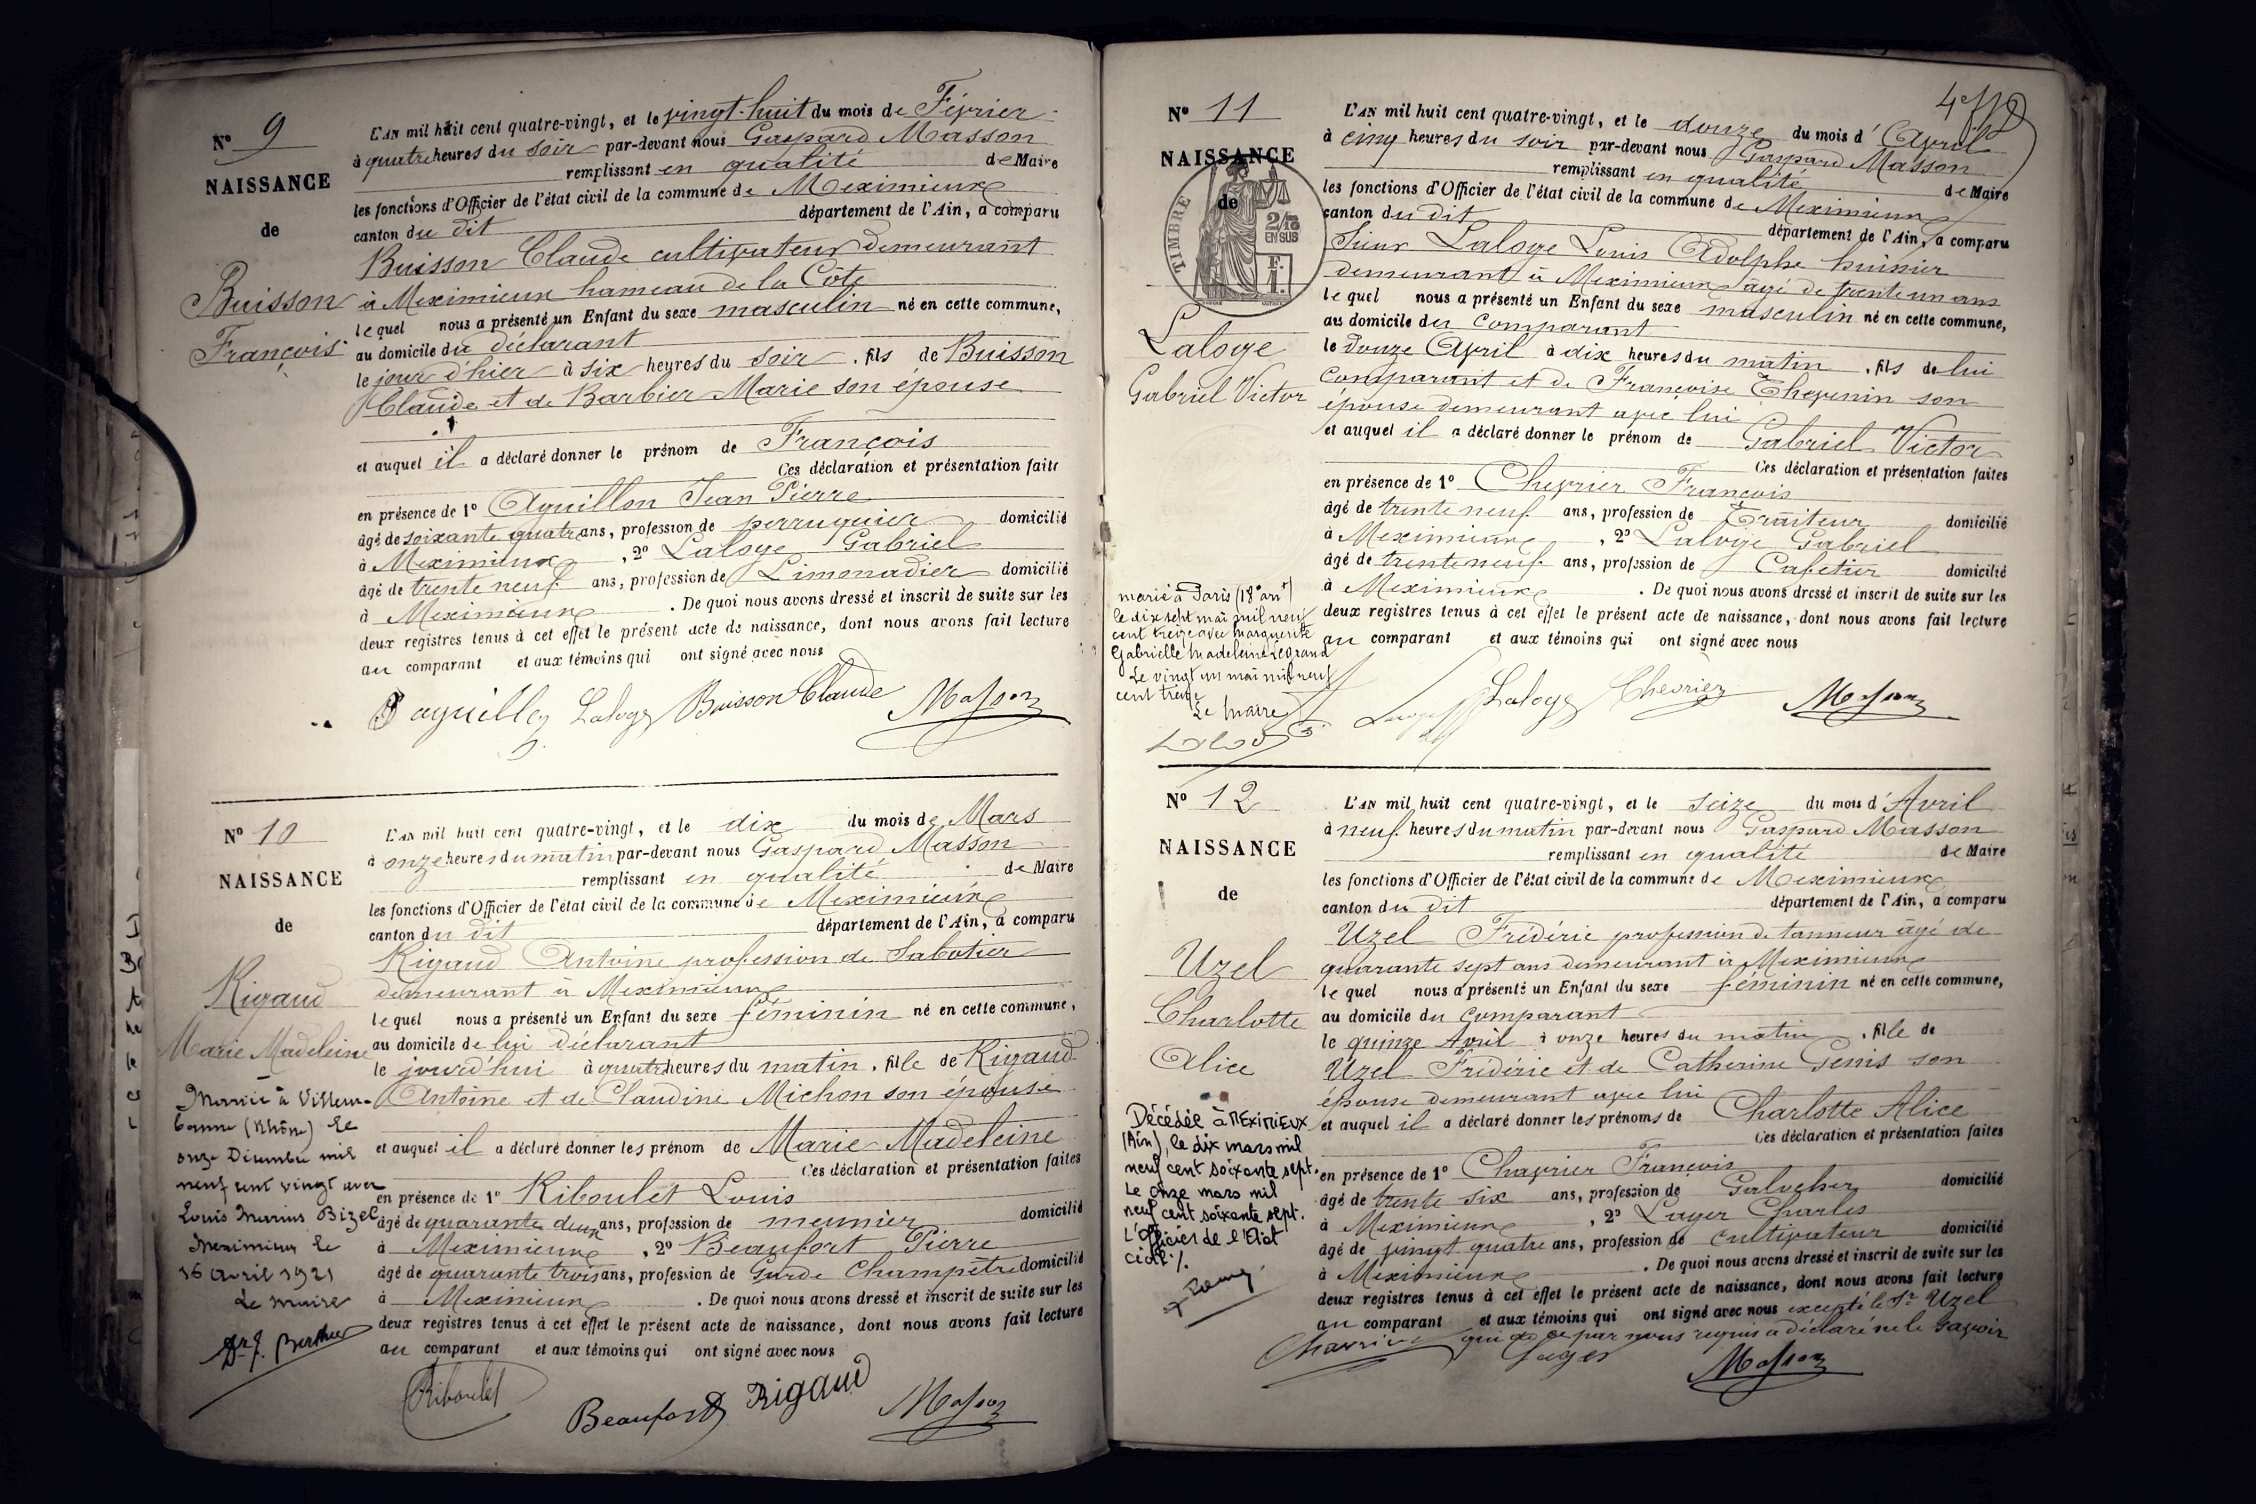 Nº 9
NAISSANCE
de
Buisson
François
L'AN mil huit cent quatre-vingt, et le vingt-huit du mois de Février
à quatre heures du soir par-devant nous Gaspard Masson
remplissant en qualité de Maire
les fonctions d'Officier de l'état civil de la commune de Meximieux
canton du dit département de l'Ain, a comparu
Buisson Claude cultivateur demeurant
à Meximieux hameau de la Côte
lequel nous a présenté un Enfant du sexe masculin né en cette commune,
au domicile du déclarant
le jour d'hier à six heures du soir, fils de Buisson
Claude et de Barbier Marie son épouse
et auquel il a déclaré donner le prénom de François
Ces déclaration et présentation faites
en présence de 1º Aguillon Jean Pierre
âgé de soixante quatre ans, profession de perruquier domicilié
à Meximieux, 2º Laloge Gabriel
âgé de trente neuf ans, profession de Limonadier domicilié
à Meximieux. De quoi nous avons dressé et inscrit de suite sur les
deux registres tenus à cet effet le présent acte de naissance, dont nous avons fait lecture
au comparant et aux témoins qui ont signé avec nous
Laloge Buisson Claude Masson
Nº 10
NAISSANCE
de
Rigaud
Marie Madeleine
Mariée à Villeur-
banne (Rhône) le
onze Décembre mil
neuf cent vingt avec
Louis Marius Bizel
Meximieux le
16 avril 1921
Le Maire
L'AN mil huit cent quatre-vingt, et le dix du mois de Mars
à onze heures du matin par-devant nous Gaspard Masson
remplissant en qualité de Maire
les fonctions d'Officier de l'état civil de la commune de Meximieux
canton du dit département de l'Ain, a comparu
Rigaud Antoine profession de Sabotier
demeurant à Meximieux
lequel nous a présenté un Enfant du sexe féminin né en cette commune,
au domicile de lui déclarant
le jourd'hui à quatre heures du matin, fille de Rigaud
Antoine et de Claudine Michon son épouse
et auquel il a déclaré donner les prénom de Marie Madeleine
Ces déclaration et présentation faites
en présence de 1º Riboulet Louis
âgé de quarante deux ans, profession de meunier domicilié
à Meximieux, 2º Beaufort Pierre
âgé de quarante trois ans, profession de Garde Champêtre domicilié
à Meximieux. De quoi nous avons dressé et inscrit de suite sur les
deux registres tenus à cet effet le présent acte de naissance, dont nous avons fait lecture
au comparant et aux témoins qui ont signé avec nous
Riboulet Beaufort Rigaud Masson
Nº 11
NAISSANCE
de
TIMBRE
2/10
EN SUS
F.
1.
Laloge
Gabriel Victor
marié à Paris (18e arrt)
le dix sept mai mil neuf
cent treize avec Marguerite
Gabrielle Madeleine Legrand
Le vingt un mai mil neuf
cent treize
Le Maire
L'AN mil huit cent quatre-vingt, et le douze du mois d'Avril
à cinq heures du soir par-devant nous Gaspard Masson
remplissant en qualité de Maire
les fonctions d'Officier de l'état civil de la commune de Meximieux
canton du dit département de l'Ain, a comparu
Sieur Laloge Louis Adolphe huissier
demeurant à Meximieux âgé de trente un ans
lequel nous a présenté un Enfant du sexe masculin né en cette commune,
au domicile du comparant
le douze Avril à dix heures du matin, fils de lui
comparant et de Françoise Thevenin son
épouse demeurant avec lui
et auquel il a déclaré donner le prénom de Gabriel Victor
Ces déclaration et présentation faites
en présence de 1º Chevrier François
âgé de trente neuf ans, profession de Traiteur domicilié
à Meximieux, 2º Laloge Gabriel
âgé de trente neuf ans, profession de Cafetier domicilié
à Meximieux. De quoi nous avons dressé et inscrit de suite sur les
deux registres tenus à cet effet le présent acte de naissance, dont nous avons fait lecture
au comparant et aux témoins qui ont signé avec nous
Laloge Chevrier Masson
Nº 12
NAISSANCE
de
Uzel
Charlotte
Alice
Décédée à MEXIMIEUX
(Ain), le dix mars mil
neuf cent soixante sept.
Le onze mars mil
neuf cent soixante sept.
L'officier de l'Etat
civil ./.
L'AN mil huit cent quatre-vingt, et le seize du mois d'Avril
à neuf heures du matin par-devant nous Gaspard Masson
remplissant en qualité de Maire
les fonctions d'Officier de l'état civil de la commune de Meximieux
canton du dit département de l'Ain, a comparu
Uzel Frédéric profession de tanneur âgé de
quarante sept ans demeurant à Meximieux
lequel nous a présenté un Enfant du sexe féminin né en cette commune,
au domicile du comparant
le quinze Avril à onze heures du matin, fille de
Uzel Frédéric et de Catherine Genis son
épouse demeurant avec lui
et auquel il a déclaré donner les prénoms de Charlotte Alice
Ces déclaration et présentation faites
en présence de 1º Charrier François
âgé de trente six ans, profession de Galocher domicilié
à Meximieux, 2º Lager Charles
âgé de vingt quatre ans, profession de cultivateur domicilié
à Meximieux. De quoi nous avons dressé et inscrit de suite sur les
deux registres tenus à cet effet le présent acte de naissance, dont nous avons fait lecture
au comparant et aux témoins qui ont signé avec nous excepté le Sr Uzel
qui de ce par nous requis a déclaré ne le savoir
Charrier Lager Masson